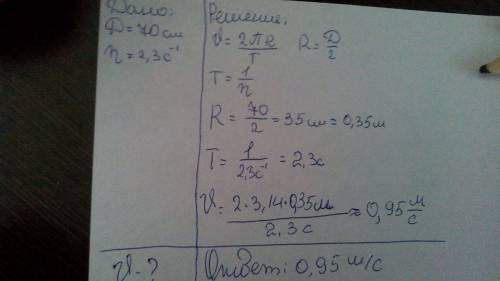 Дано:
D = 70 см
n = 2,3 с⁻¹
V - ?
Решение:
V = 2πR/T R = D/2
T = 1/n
R = 70/2 = 35 см = 0,35 м
T = 1/2,3с⁻¹ = 2,3 с
V = 2·3,14·0,35м/2,3 с ≈ 0,95 м/с
Ответ: 0,95 м/с